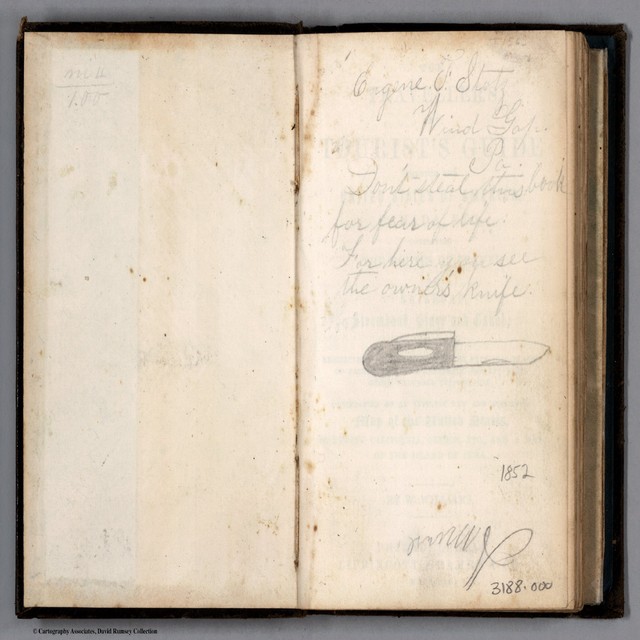 Eugene F. Stotz
Wind Gap.
Pa.
Don't steal this book
for fear of life.
For here you see
the owners knife.
1852
3188.000
TOURIST'S GUIDE
1.00
© Cartography Associates, David Rumsey Collection